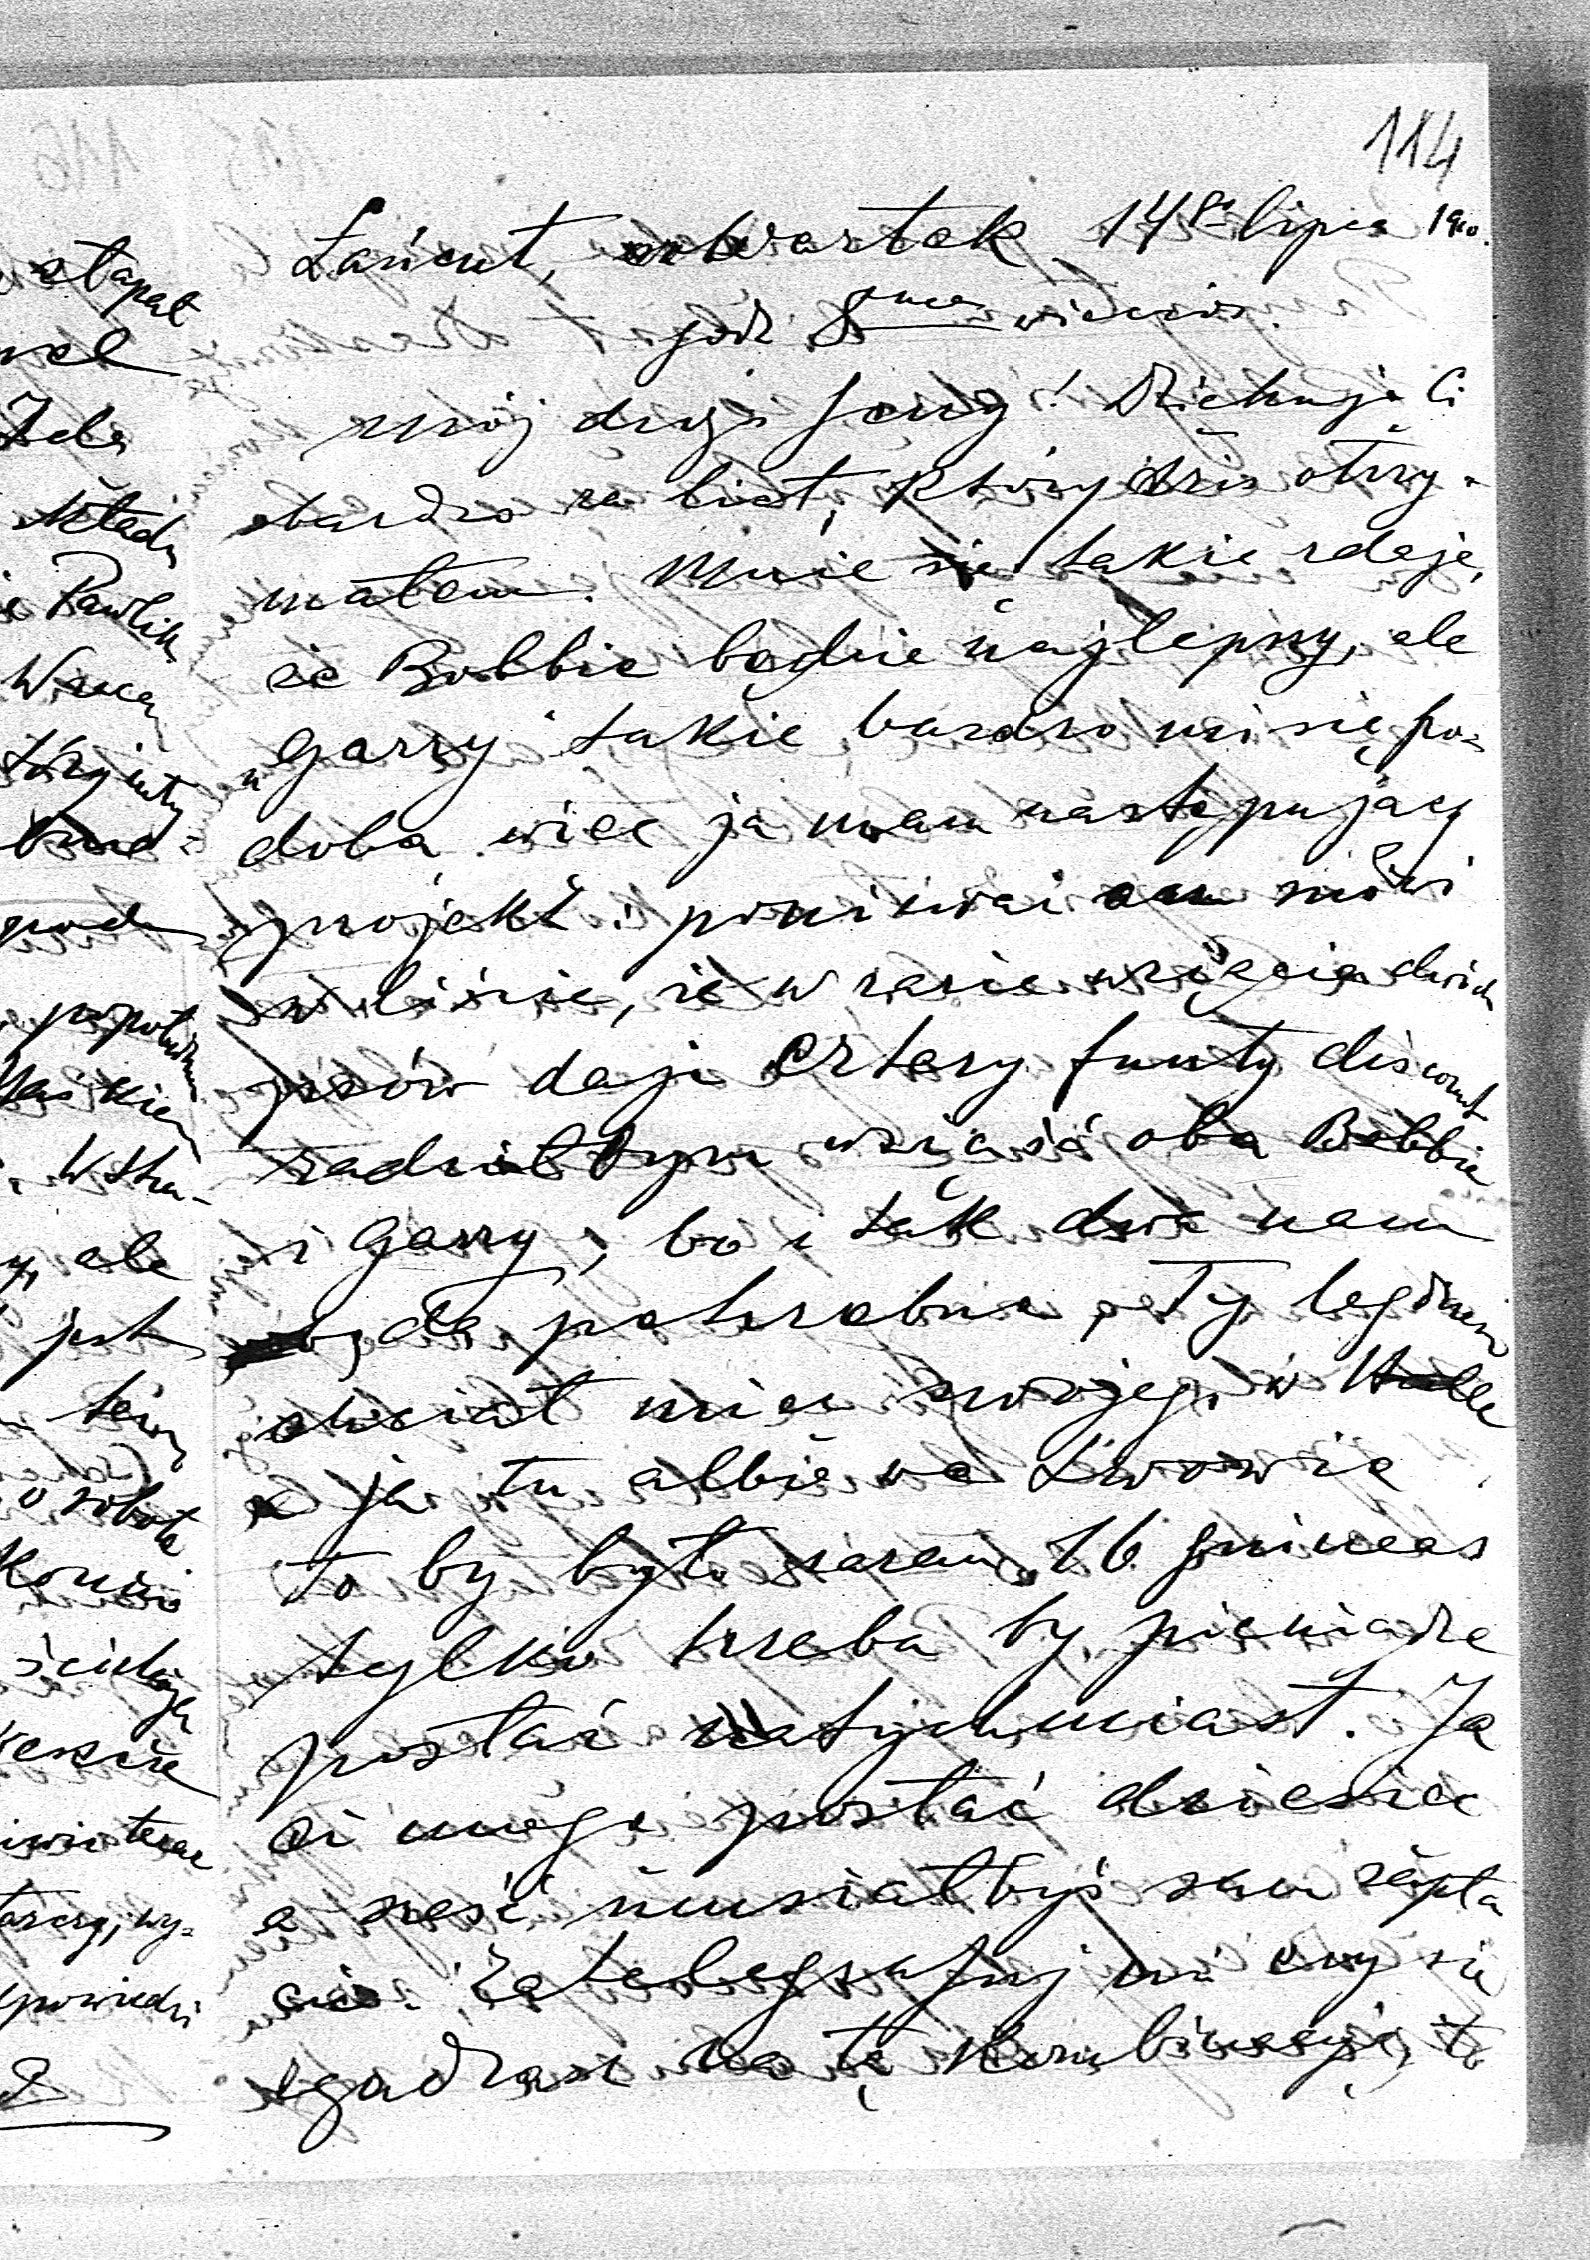 114
Łańcut, czwartek 14go lipca 1910.
godz 8mea wieczór.
Mój drogi Jerzy! Dziękuję Ci
bardzo za list, który dziś otrzy-
małem. Mnie się także zdaje,
że Bobbie będzie najlepszy, ale
Garry także bardzo mi się po-
doba więc ja mam następujący
projekt: ponieważ on mówi
w liście, że w razie wzięcia dwóch
psów daje cztery funty discount
radziłbym wziąść oba Bobbie
i Garry, bo i tak dwa nam
będą potrzebne, Ty będziesz
chciał mieć swojego w
a ja tu albo we Lwowie.
To by było razem 16 guineas
tylko trzeba by pieniądze
posłać natychmiast. Ja
Ci mogę posłać dziesięć
a sześć musiałbyś sam zapła
cić. Zatelegrafuj mi czy się
zgadzasz na tę kombinację, to
etapał
Ida
składu
i Pawlik
popołudniu
y, ale
jest
sobota
teraz
powiedzi